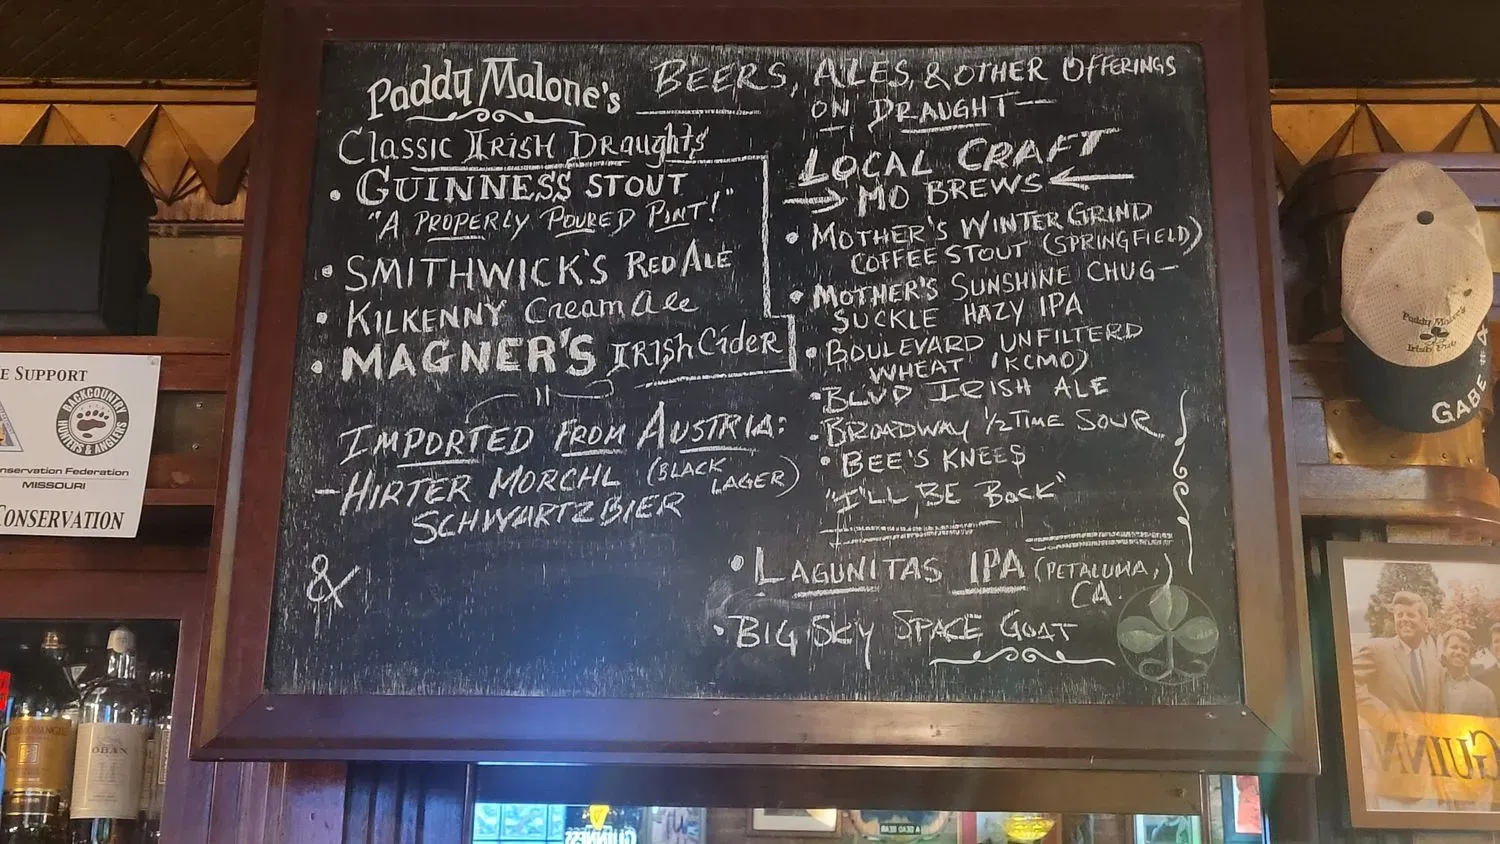 Paddy Malone's
BEERS, ALES, & OTHER OFFERINGS
ON DRAUGHT
Classic IRISH Draughts
• GUINNESS STOUT
"A PROPERLY POURED PINT!"
• SMITHWICK'S RED ALE
• KILKENNY Cream Ale
• MAGNER'S IRISH Cider
IMPORTED FROM AUSTRIA:
- HIRTER MORCHL (BLACK
LAGER)
SCHWARTZBIER
&
LOCAL CRAFT
→ MO BREWS ←
• MOTHER'S WINTER GRIND
COFFEE STOUT (SPRINGFIELD)
• MOTHER'S SUNSHINE CHUG-
SUCKLE HAZY IPA
• BOULEVARD UNFILTERD
WHEAT (KCMO)
• BLVD IRISH ALE
• BROADWAY 1/2 TIME SOUR
• BEE'S KNEES
"I'LL BE BACK"
• LAGUNITAS IPA (PETALUMA,
CA.
• BIG SKY SPACE GOAT
E SUPPORT
BACKCOUNTRY
HUNTERS & ANGLERS
nservation Federation
MISSOURI
CONSERVATION
OBAN
Paddy Malone's
Irish Pub
GABE #4
GUINN
GUINNESS